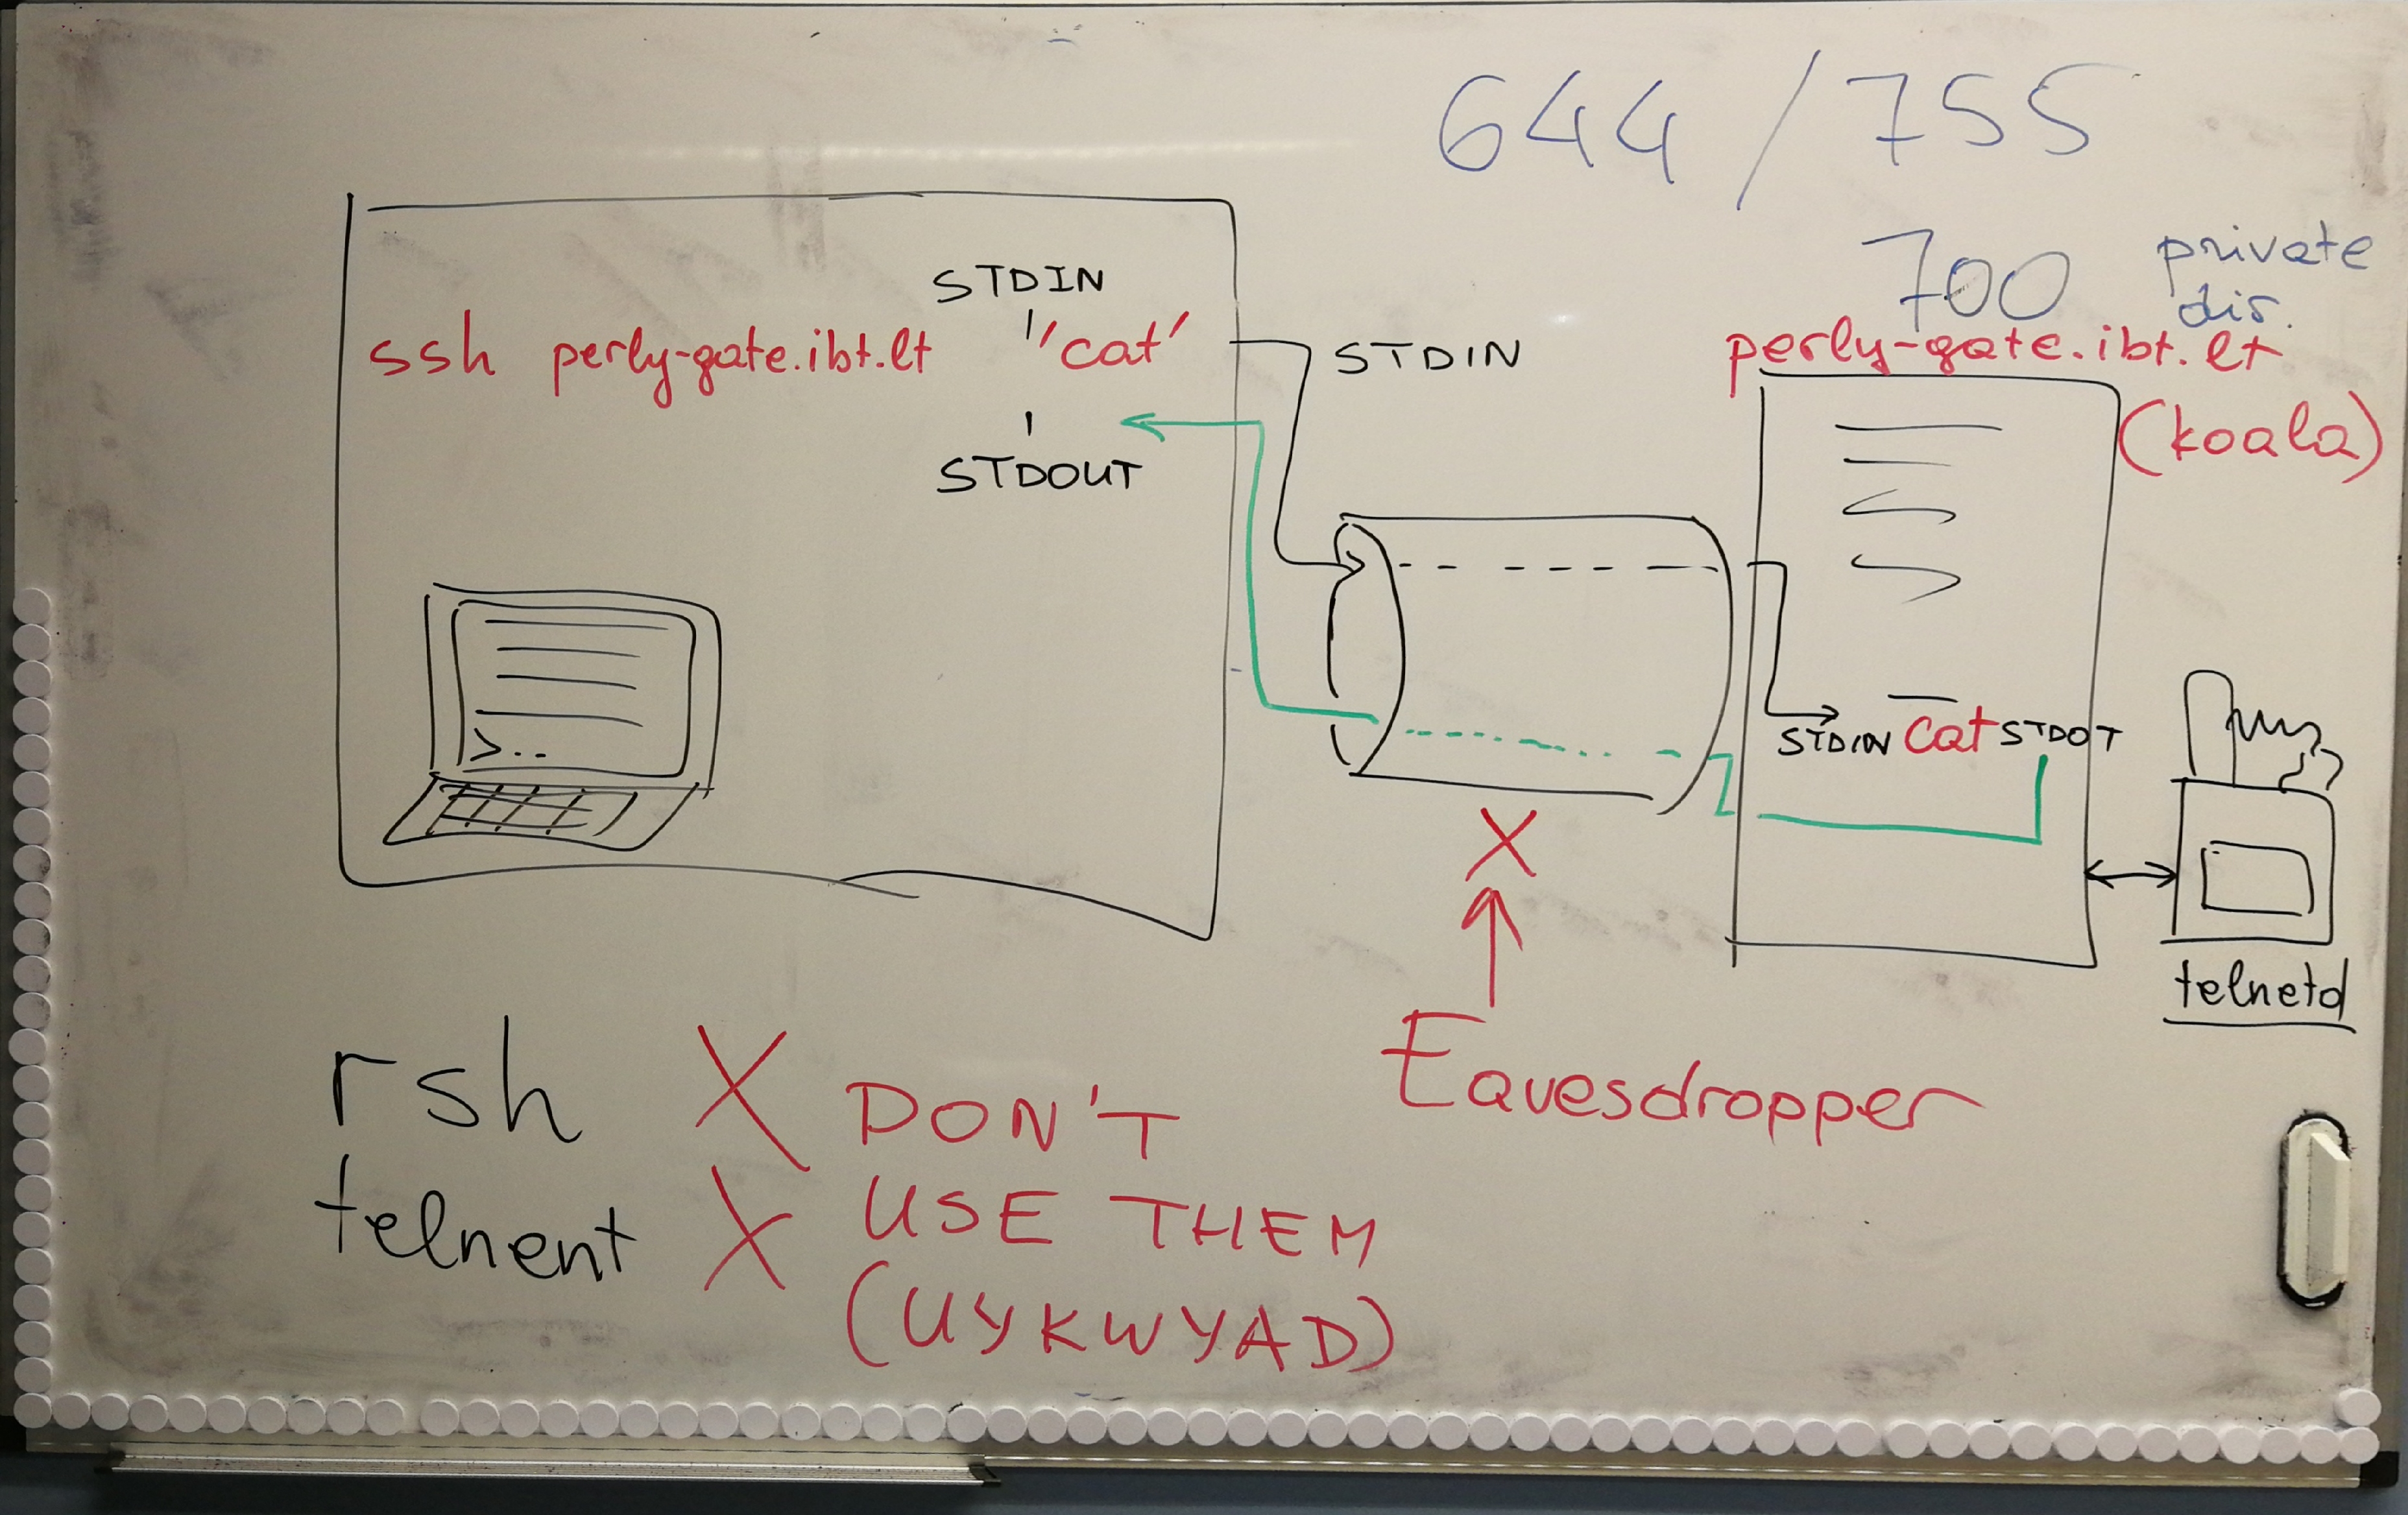 644/755
700 private
dir.
STDIN
ssh perly-gate.ibt.lt "cat"
STDOUT
STDIN
perly-gate.ibt.lt
(koala)
>...
STDIN cat STDOT
telnetd
X
Eavesdropper
rsh X DON'T
telnent X USE THEM
(UYKWYAD)